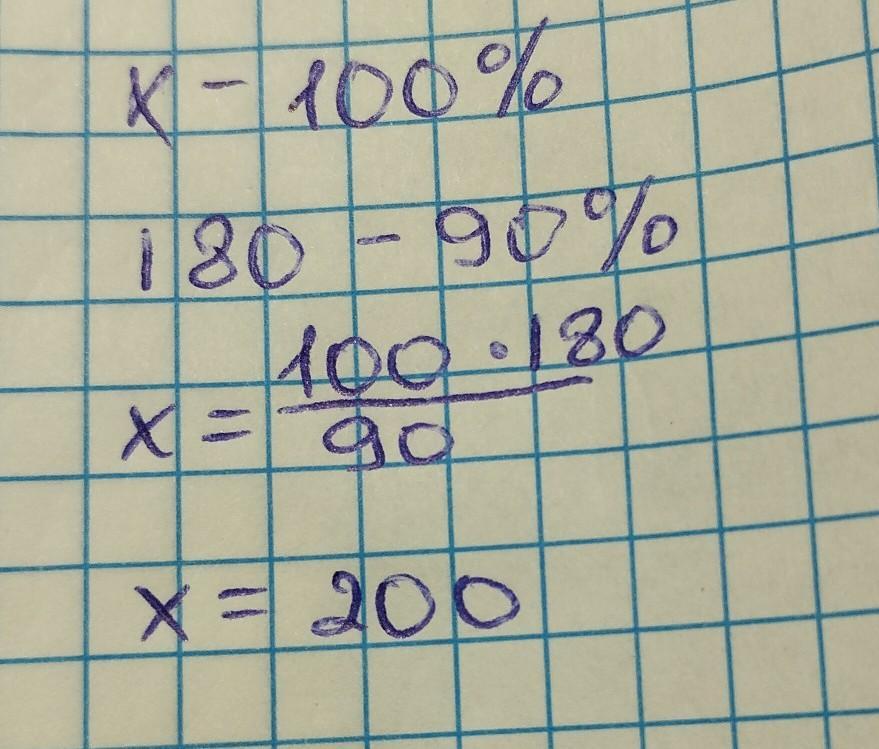 x - 100%
180 - 90%
x = \frac{100 \cdot 180}{90}
x = 200